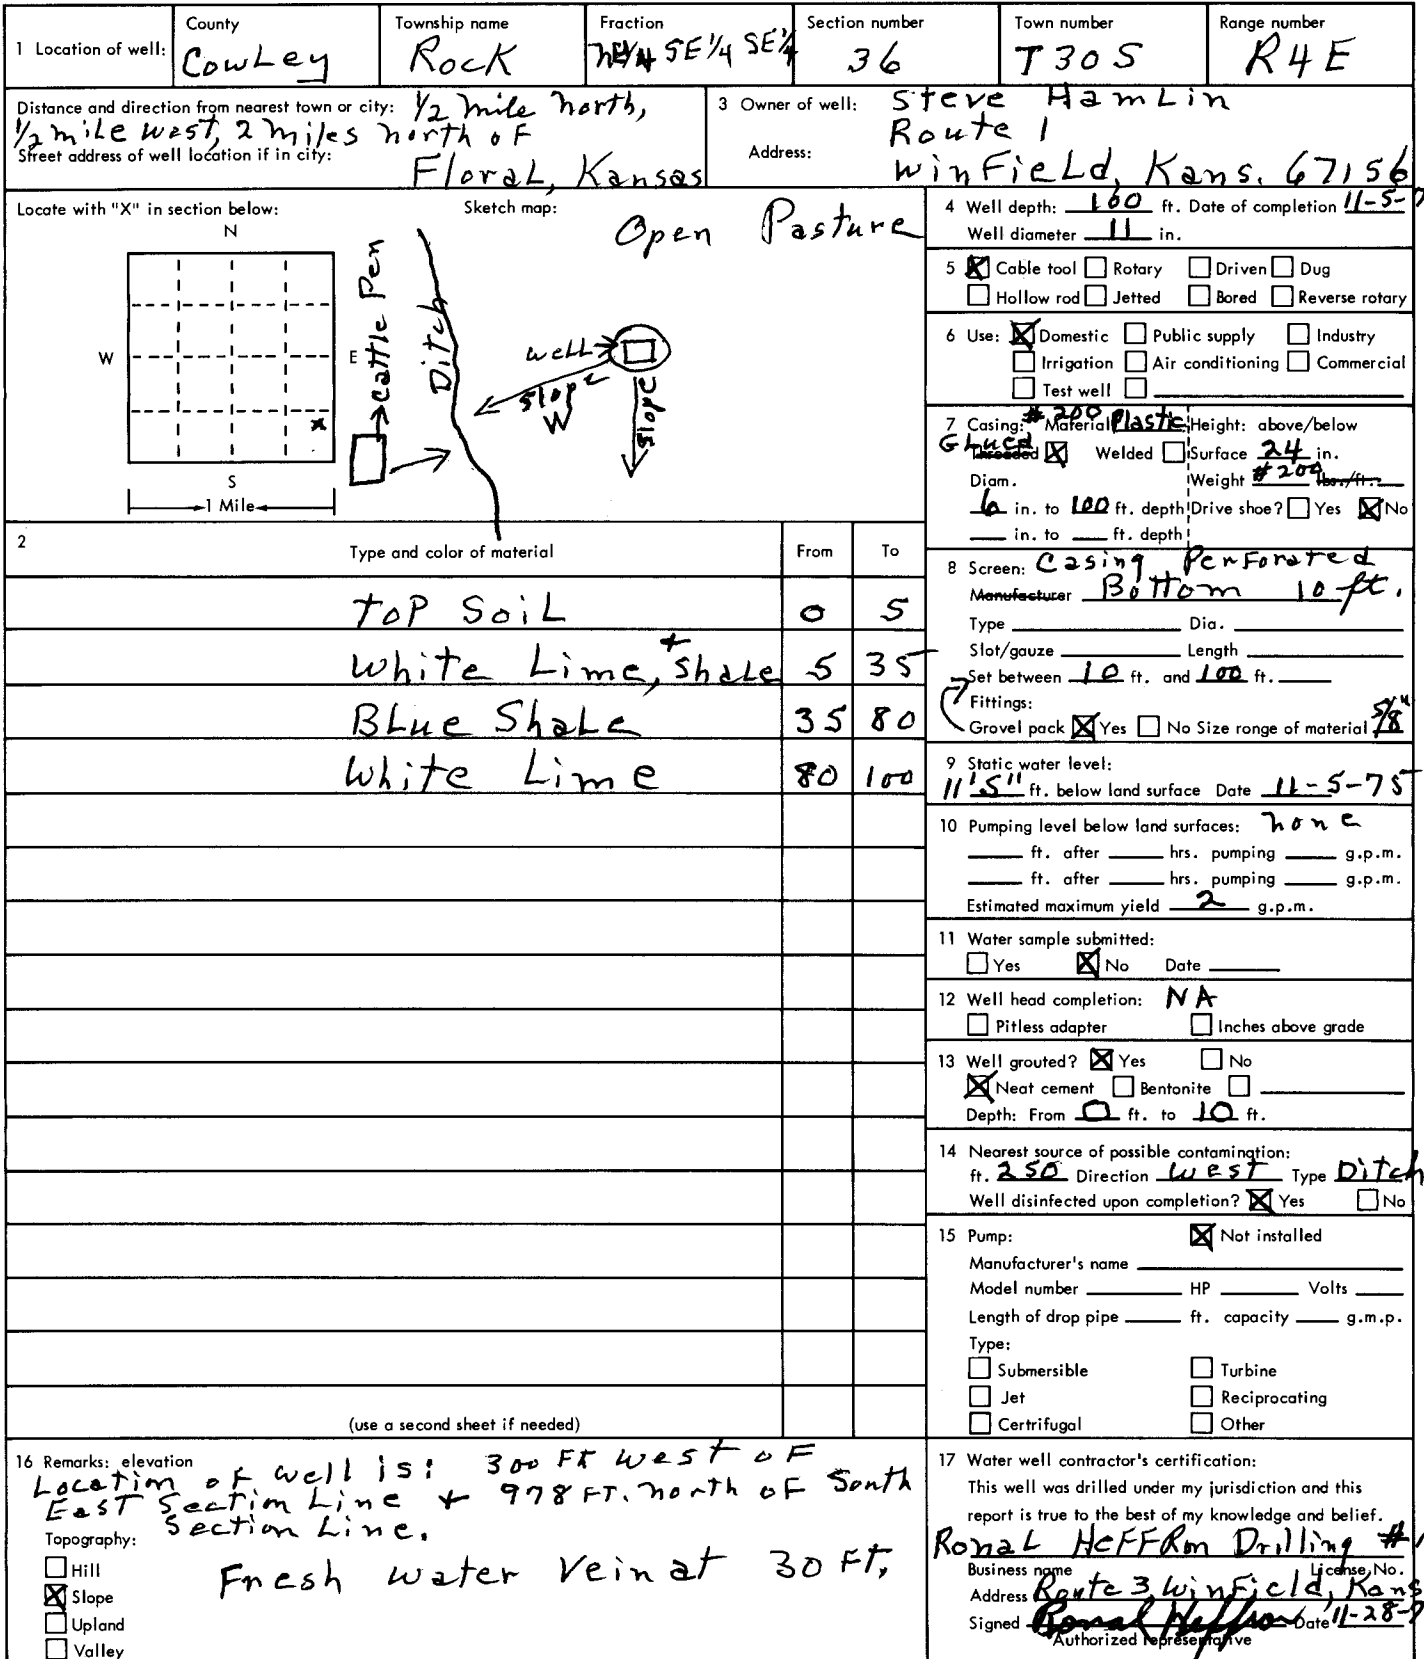 1 Location of well: County Cowley Township name Rock Fraction NE¼ SE¼ SE¼ Section number 36 Town number T30S Range number R4E
Distance and direction from nearest town or city: ½ mile north,
½ mile west, 2 miles north of
Street address of well location if in city: Floral, Kansas
3 Owner of well: Steve Hamlin
Route 1
Address: Winfield, Kans. 67156
Locate with "X" in section below:
N
W
E
S
x
1 Mile
Sketch map:
Open Pasture
Cattle Pen
Ditch
well
slope
W
slope
2 Type and color of material From To
Top Soil 0 5
White Lime, + Shale 5 35
Blue Shale 35 80
White Lime 80 100
(use a second sheet if needed)
4 Well depth: 100 ft. Date of completion 11-5-7
Well diameter 11 in.
5 Cable tool Rotary Driven Dug
Hollow rod Jetted Bored Reverse rotary
6 Use: Domestic Public supply Industry
Irrigation Air conditioning Commercial
Test well
7 Casing: #200 Material Plastic Height: above/below
Glued Threaded Welded Surface 24 in.
Diam. Weight #200 lbs./ft.
6 in. to 100 ft. depth Drive shoe? Yes No
in. to ft. depth
8 Screen: Casing Perforated
Manufacturer Bottom 10 ft.
Type Dia.
Slot/gauze Length
Set between 10 ft. and 100 ft.
Fittings:
Grovel pack Yes No Size range of material 5/8"
9 Static water level:
11'5" ft. below land surface Date 11-5-75
10 Pumping level below land surfaces: none
ft. after hrs. pumping g.p.m.
ft. after hrs. pumping g.p.m.
Estimated maximum yield 2 g.p.m.
11 Water sample submitted:
Yes No Date
12 Well head completion: NA
Pitless adapter Inches above grade
13 Well grouted? Yes No
Neat cement Bentonite
Depth: From 0 ft. to 10 ft.
14 Nearest source of possible contamination:
ft. 250 Direction West Type Ditch
Well disinfected upon completion? Yes No
15 Pump: Not installed
Manufacturer's name
Model number HP Volts
Length of drop pipe ft. capacity g.m.p.
Type:
Submersible Turbine
Jet Reciprocating
Certrifugal Other
16 Remarks: elevation
Location of well is: 300 Ft West of
East Section Line + 978 FT. north of South
Section Line.
Topography:
Hill
Slope
Upland
Valley
Fresh water vein at 30 Ft.
17 Water well contractor's certification:
This well was drilled under my jurisdiction and this
report is true to the best of my knowledge and belief.
Ronal Heffron Drilling #
Business name License No.
Address Route 3, Winfield, Kans
Signed Ronal Heffron Date 11-28-7
Authorized representative